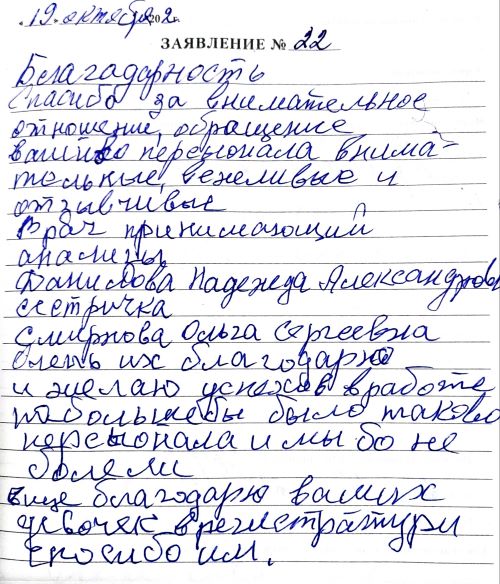 19 октября 202 г.
ЗАЯВЛЕНИЕ № 22
Благодарность
Спасибо за внимательное
отношение, обращение
вашего персыонала внима-
тельные, вежливые и
отзывчивые
Врач принимающий
анализы
Данилова Надежда Александровн
сестричка
Смирнова Ольга Сергеевна
очень их благодарю
и желаю успехов в работе
побольше бы было таково
персыонала и мы бо не
болели
еще благодарю ваших
девочек в регистратури
спосибо им.